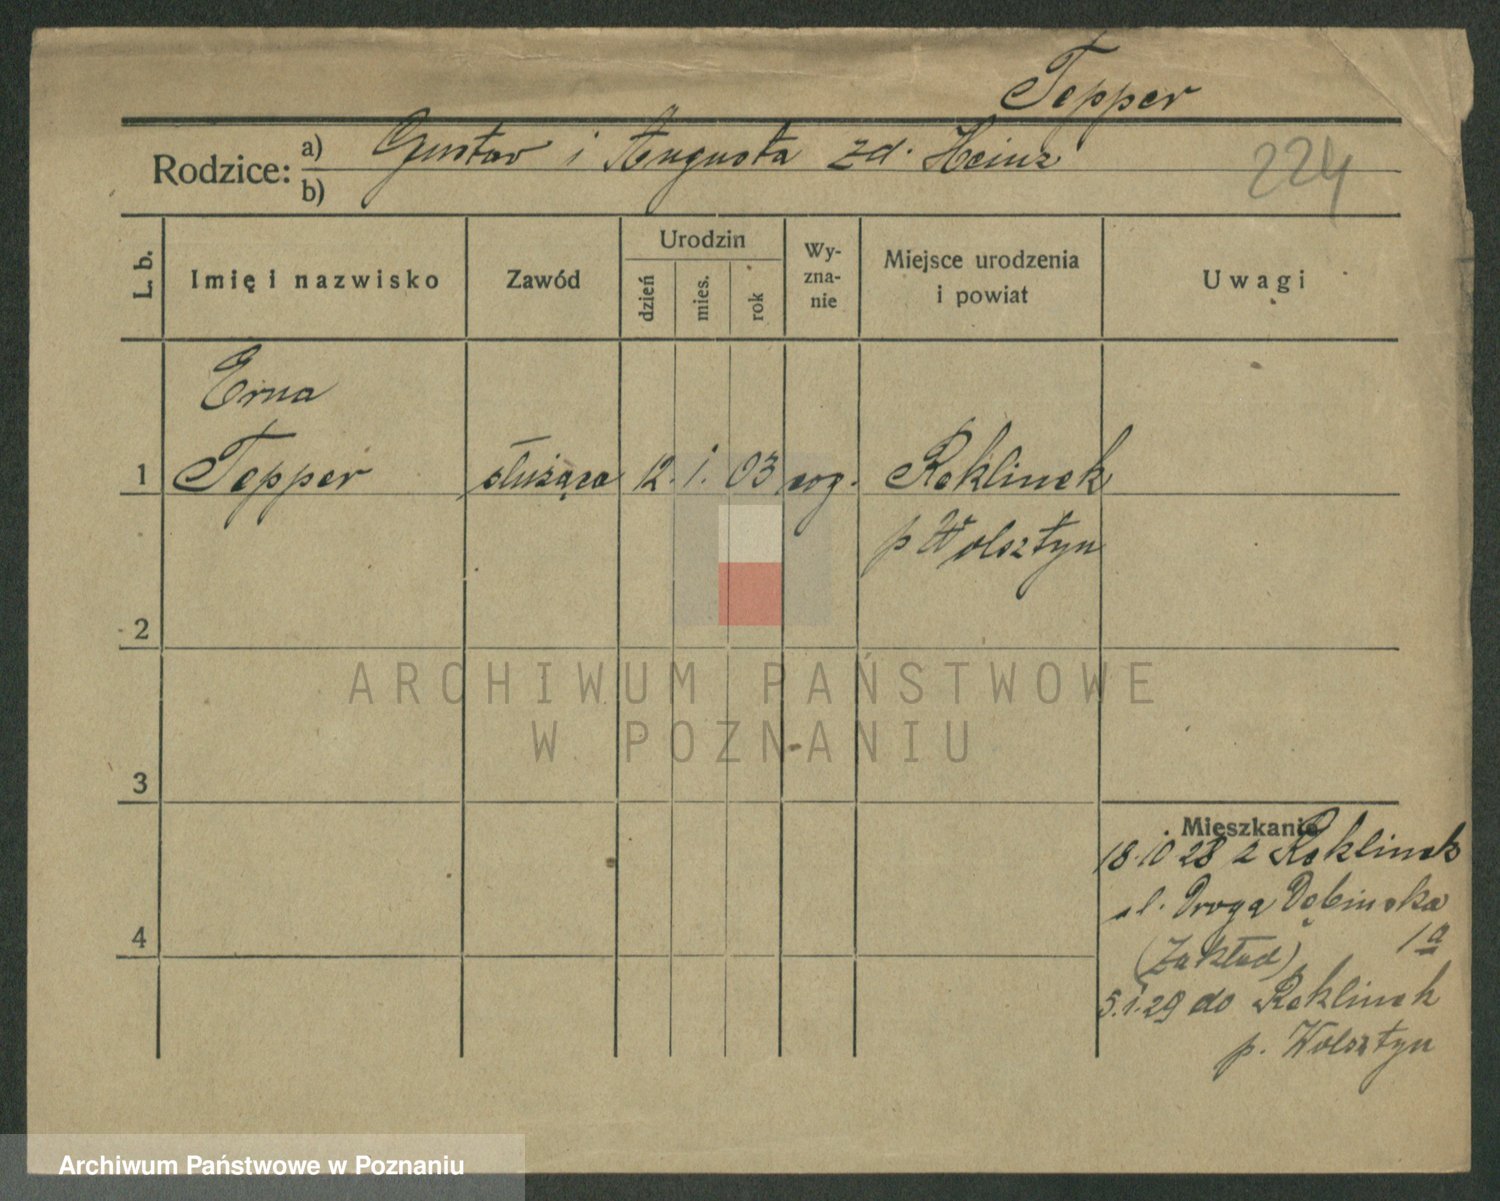 Tepper
Rodzice:
a) Gustav i Augusta zd. Heinz
b)
224
L. b.
Imię i nazwisko
Zawód
Urodzin
dzień
mies.
rok
Wy-
zna-
nie
Miejsce urodzenia
i powiat
Uwagi
Erna
1 Tepper służąca 12. i. 03 Reklinek
p Wolsztyn
2
3
4
Mieszkanie
18.10 28 z Reklinek
ul. Droga Dębinska
1a
(Zakład)
5.i.29 do Reklinek
p. Wolsztyn
ARCHIWUM PAŃSTWOWE
W POZNANIU
Archiwum Państwowe w Poznaniu